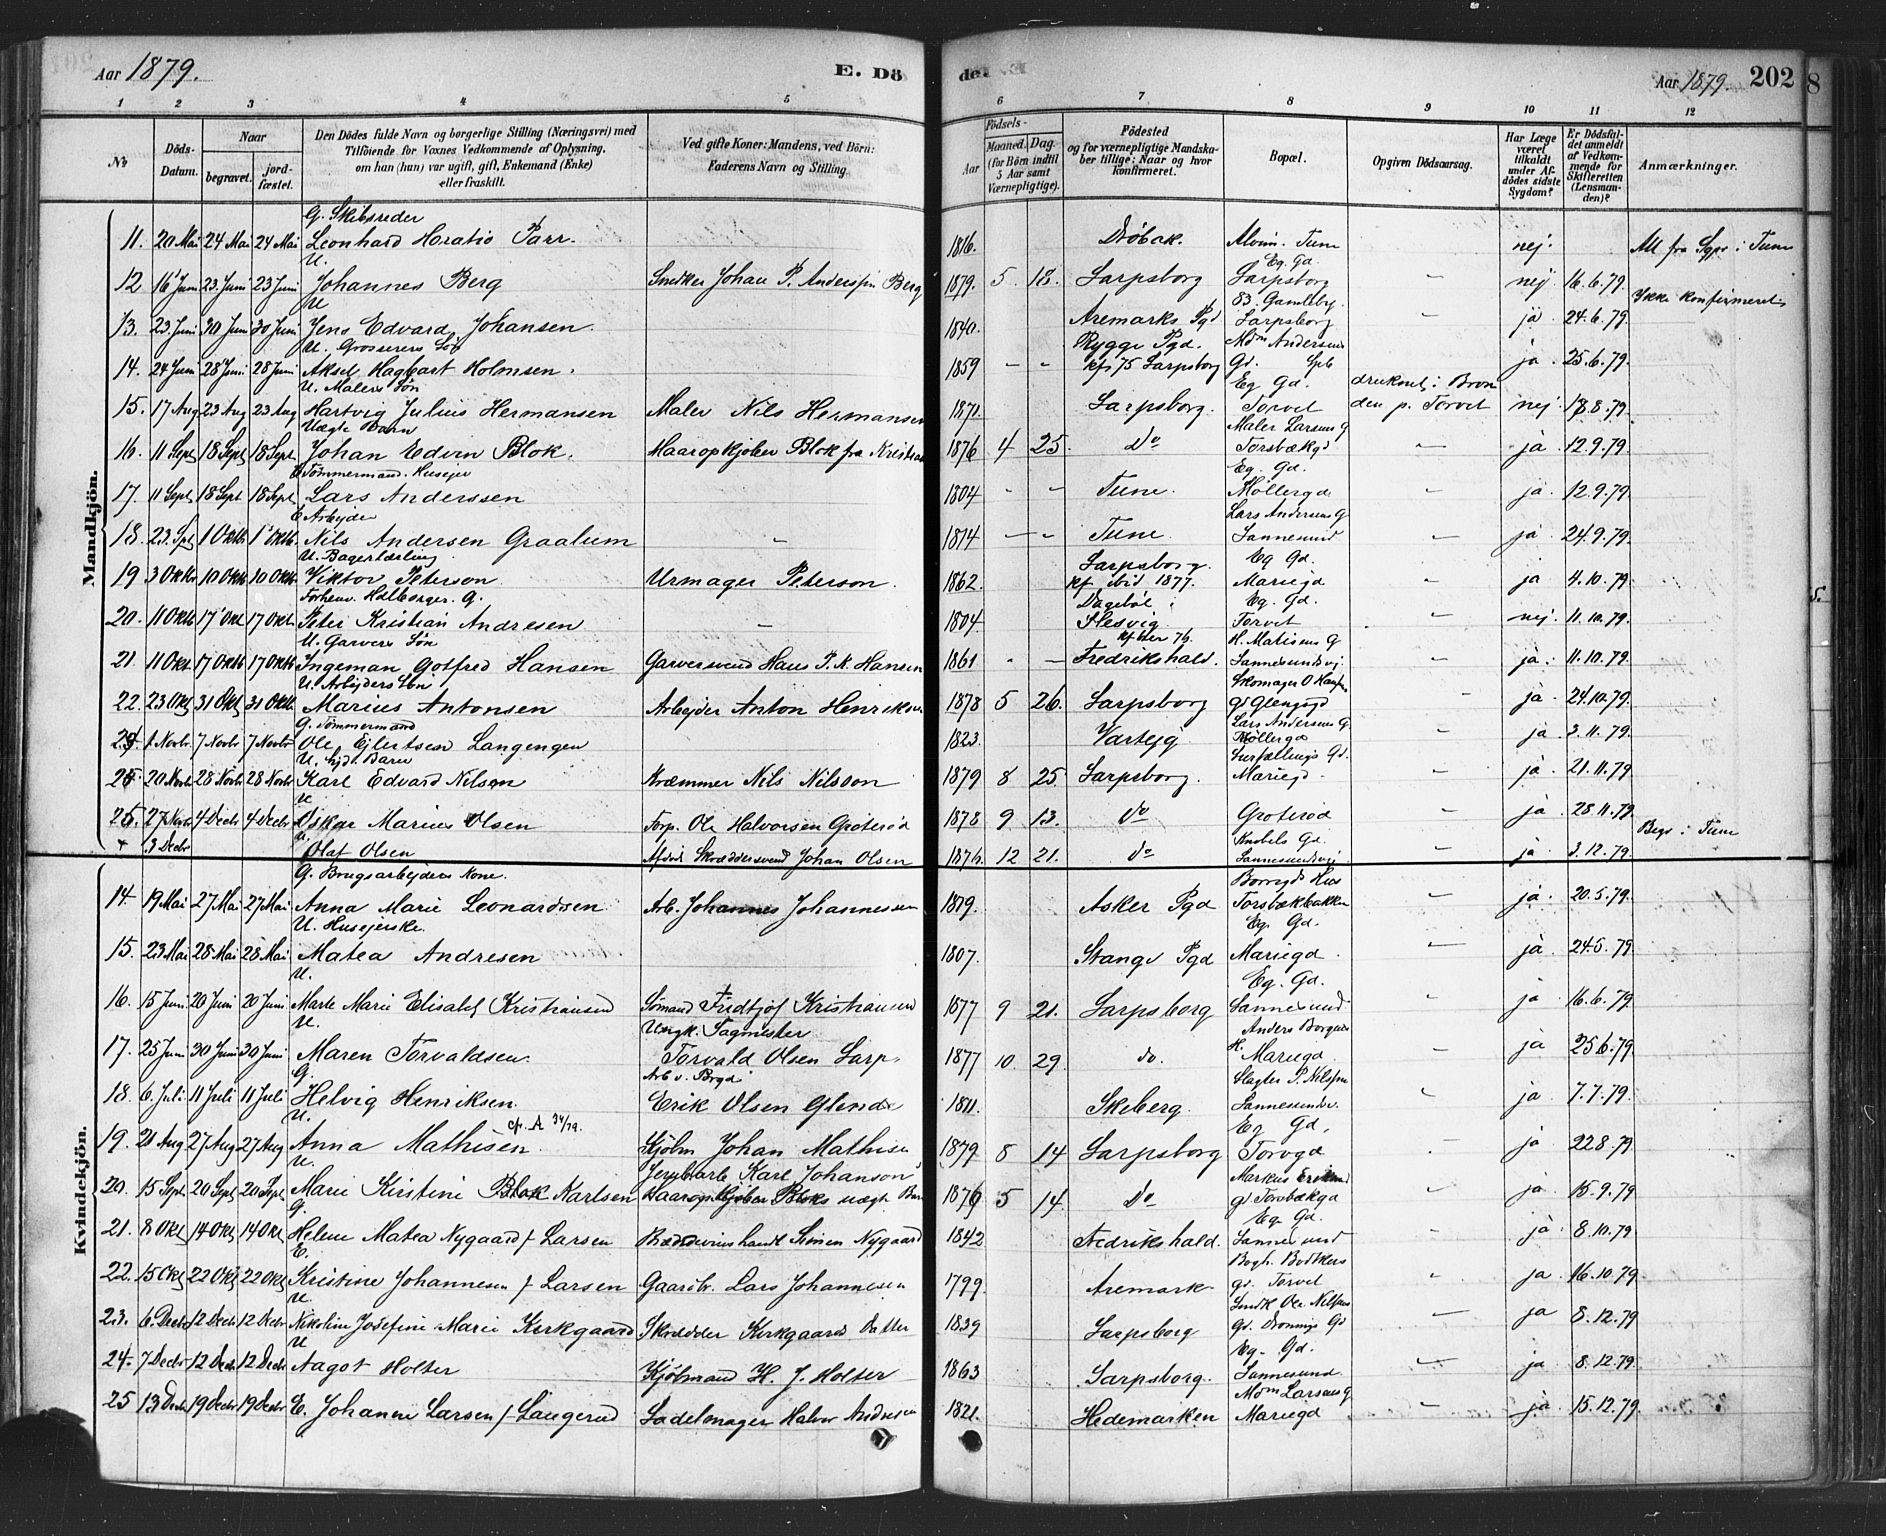 Aar 1879.
E. Dö
de.
Aar 1879. 202
1 2 3 4 5 6 7 8 9 10 11 12
No
Döds-Datum.
Naar
begravet.
jordfæstet.
Den Dödes fulde Navn og borgerlige Stilling (Næringsvei) med
Tilföiende for Voxnes Vedkommende af Oplysning,
om han (hun) var ugift, gift, Enkemand (Enke)
eller fraskilt.
Ved gifte Koner: Mandens, ved Börn:
Faderens Navn og Stilling
Födsels-
Aar
Maaned. Dag.
(for Börn indtil
5 Aar samt
Værnepligtige).
Födested
og for værnepligtige Mandskaber tillige: Naar og hvor
konfirmeret.
Bopæl.
Opgiven Dödsaarsag.
Har Læge
været
tilkaldt
under Afdödes sidste
Sygdom?
Er Dödsfaldet anmeldt
af Vedkommende for
Skifteretten
(Lensmanden)?
Anmærkninger.
Mandkjön.
G. Skibsreder
11. 20 Mai 24 Mai 24 Mai Leonhard Horatio Parr. 1816. Dröbak. Alvim. Tune nej. Att fra Spr i Tune
U. Eg. Gd.
12 16 Juni 23 Juni 23 Juni Johannes Berg Snedker Johan P. Anderssen Berg 1879. 5 18. Sarpsborg Sarpsborg nej 16.6.79.
U 83. Gamleby. Ikke konfirmeret
13. 23 Juni 30 Juni 30 Juni Jens Edvard Johansen. 1840. Aremarks Pgd Sarpsborg ja 24.6.79.
U. Grosserers Sön Rygge Pgd. Mdm Andersens
14. 24 Juni 28 Juni 28 Juni Aksel Hagbart Holmsen. 1859 kf. 75 Sarpsborg Gd. Spb ja 25.6.79.
U. Malers Sön Eg Gd. druknet i Brön
15. 17 Aug 23 Aug 23 Aug Hartvig Julius Hermansen Maler Nils Hermansen 1871. Sarpsborg. Torvet den p. Torvet nej 18.8.79.
Uægte Barn Maler Larsens G
16. 11 Sept 18 Sept 18 Sept Johan Edvin Blok. Maaropkjöber Blok fra Kristia 1876 4 25. do Torsbækgd ja 12.9.79.
E Tömmermand. Husejer Eg. Gd.
17. 11 Sept 18 Sept 18 Sept Lars Anderssen 1804 Tune. Möllergd ja 12.9.79.
E Arbejder Lars Andersens G
18. 23. Spt 1 Oktb 1 Oktb. Nils Andersen Graalum 1814 Tune. Sannesund ja 24.9.79.
U. Bagerlærling Sarpsborg. Eg Gd.
19 3 Oktb 10 Oktb 10 Oktb. Viktor Peterson Urmager Peterson. 1862. kf. ibid 1877. Mariegd ja 4.10.79.
Forhenv. Hdlborger. G. Dagebøl Eg. Gd.
20. 11 Oktb 17 Okt 17 Oktb. Peter Kristian Andresen 1804 Slesvig. Torvet nej. 11.10.79.
U. Garvers Sön H. Matisens G
21. 11 Okt. 17 Oktb 17 Oktb Ingeman Gotfred Hansen Garversvend Hans P. N. Hansen 1861 Fredrikshald. Sannesundsvj. ja. 11.10.79.
U. Arbejders Sön Skomager O Hansens
22. 23 Okt 31 Okt 31 Oktb. Marius Antonsen Arbejder Anton Henriksen 1878 5 26. Sarpsborg Gd Glengsgd ja 24.10.79.
G. Tömmermand Lars Andersens G.
23. 1 Novbr. 7 Novbr 7 Novbr Ole Ejlertsen Langengen 1823. Varteig Möllergd ja. 3.11.79.
U. Sjdt. Barn
24. 20 Novbr 28 Novbr 28 Novbr Karl Edvard Nilsen Kræmmer Nils Nilsson 1879 8 25. Sarpsborg. Mariegd. ja 21.11.79
U
25. 27 Novbr 4 Decbr 4 Decbr Oskar Marius Olsen Forp. Ole Halvorsen Groteröd 1878 9 13. do Groteröd ja 28.11.79
U Knobels Gd. Begr. i Tune
+ 3 Decbr Olaf Olsen Afdöd Skræddersvend Johan Olsen 1876. 12 21. do Sannesundsvj ja 3.12.79.
Kvindekjön.
G. Brugsarbejders Kone. Borregds Hus
14. 19 Mai 27 Mai 27 Mai Anna Marie Leonardsen Arb. Johannes Johannessen 1879. Asker Pgd Torsbækbakken ja 20.5.79.
U. Husejerske. Eg. Gd.
15. 23 Mai 28 Mai 28 Mai Matea Andresen 1807. Stange Pgd Mariegd. ja 24.5.79
U. Eg. Gd.
16. 15 Juni 20 Juni 20 Juni Marte Marie Elisabet Kristiansen Sömand Fredtjof Kristiansen 1877 9 21. Sarpsborg Sannesund ja 16.6.79.
U. Ungk. Sagmester Anders Borgens
17. 25 Juni 30 Juni 30 Juni Maren Torvaldsen. Torvald Olsen Sarp. 1877 10. 29. do. H. Mariegd ja 25.6.79.
G. Arb v. Brgd Slagter P. Nilssen
18. 6. Juli 11 Juli 11 Juli Helvig Henriksen. Erik Olsen Glende 1811. Skeberg. Sannesundv. ja 7.7.79.
U. cfr. A 34/79. Eg Gd.
19. 21 Aug 27 Aug 27 Aug Anna Mathisen. Kjöbm Johan Mathisen 1879 8 14 Sarpsborg Torvgd ja 22.8.79
U. Jernbarb Karl Johanson
20. 15 Sept. 20 Sept 20 Sept Marie Kirstine Blok Karlsen Maaropkjöber Bloks uægt Barn 1876 5 14. do gd Torsbækgd ja 15.9.79
G. Eg. Gd.
21. 8 Okt 14 Okt 14 Okt Helene Matea Nygaard f Larsen Brændevinshandl Simen Nygaard 1842 Fredrikshald. Sannesund ja 8.10.79
E. Bogh. Bødtkers
22. 15 Okt 22 Okt 22 Okt Kristine Johannesen f Larsen Gaardbr. Lars Johannesen 1799. Aremark gd. Torvet ja 16.10.79
U. Snedk Ole Nilsens
23. 6 Decbr 12 Decbr 12 Decbr Nikoline Josefine Marie Kirkgaard Skrædder Kirkgaards Datter 1839 Sarpsborg Gd. Dronnigs Gd ja 8.12.79
U Eg. Gd.
24. 7 Decbr 12 Decbr 12 Decbr Aagot Holter Kjöbmand H. J. Holter 1863 Sarpsborg. Sannesund ja 8.12.79.
Mdm Larsens G
25 13 Decbr 19 Decbr 19 Decbr E. Johanne Larsen f. Laugerud Sadelmager Halvor Andresen 1821. Hedemarken Mariegd ja 15.12.79.